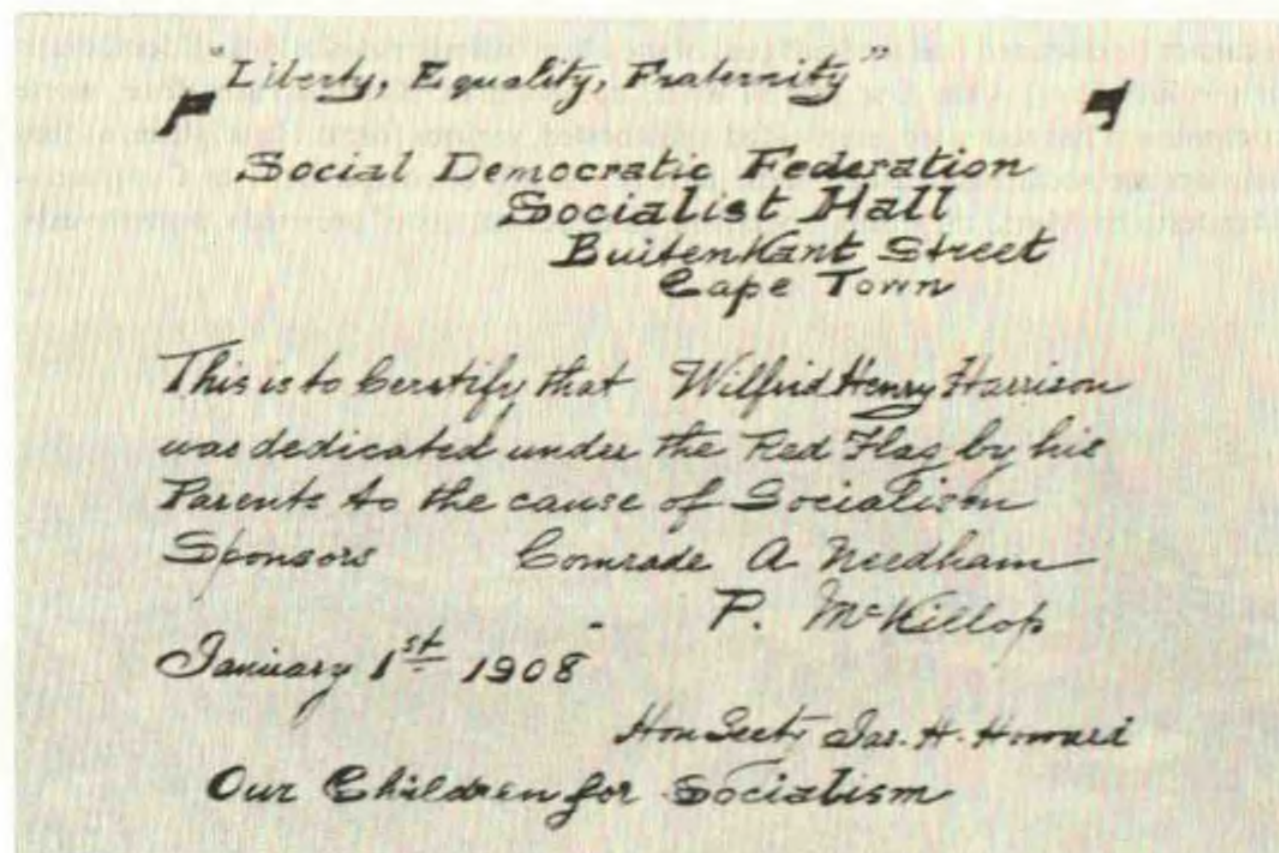 "Liberty, Equality, Fraternity"
Social Democratic Federation
Socialist Hall
Buitenkant Street
Cape Town
This is to Cerstify that Wilfrid Henry Harrison
was dedicated under the Red Flag by his
Parents to the cause of Socialism
Sponsors Comrade A Needham
P. McKillop
January 1st 1908
Hon Secty Jas. H. Howard
Our Children for Socialism